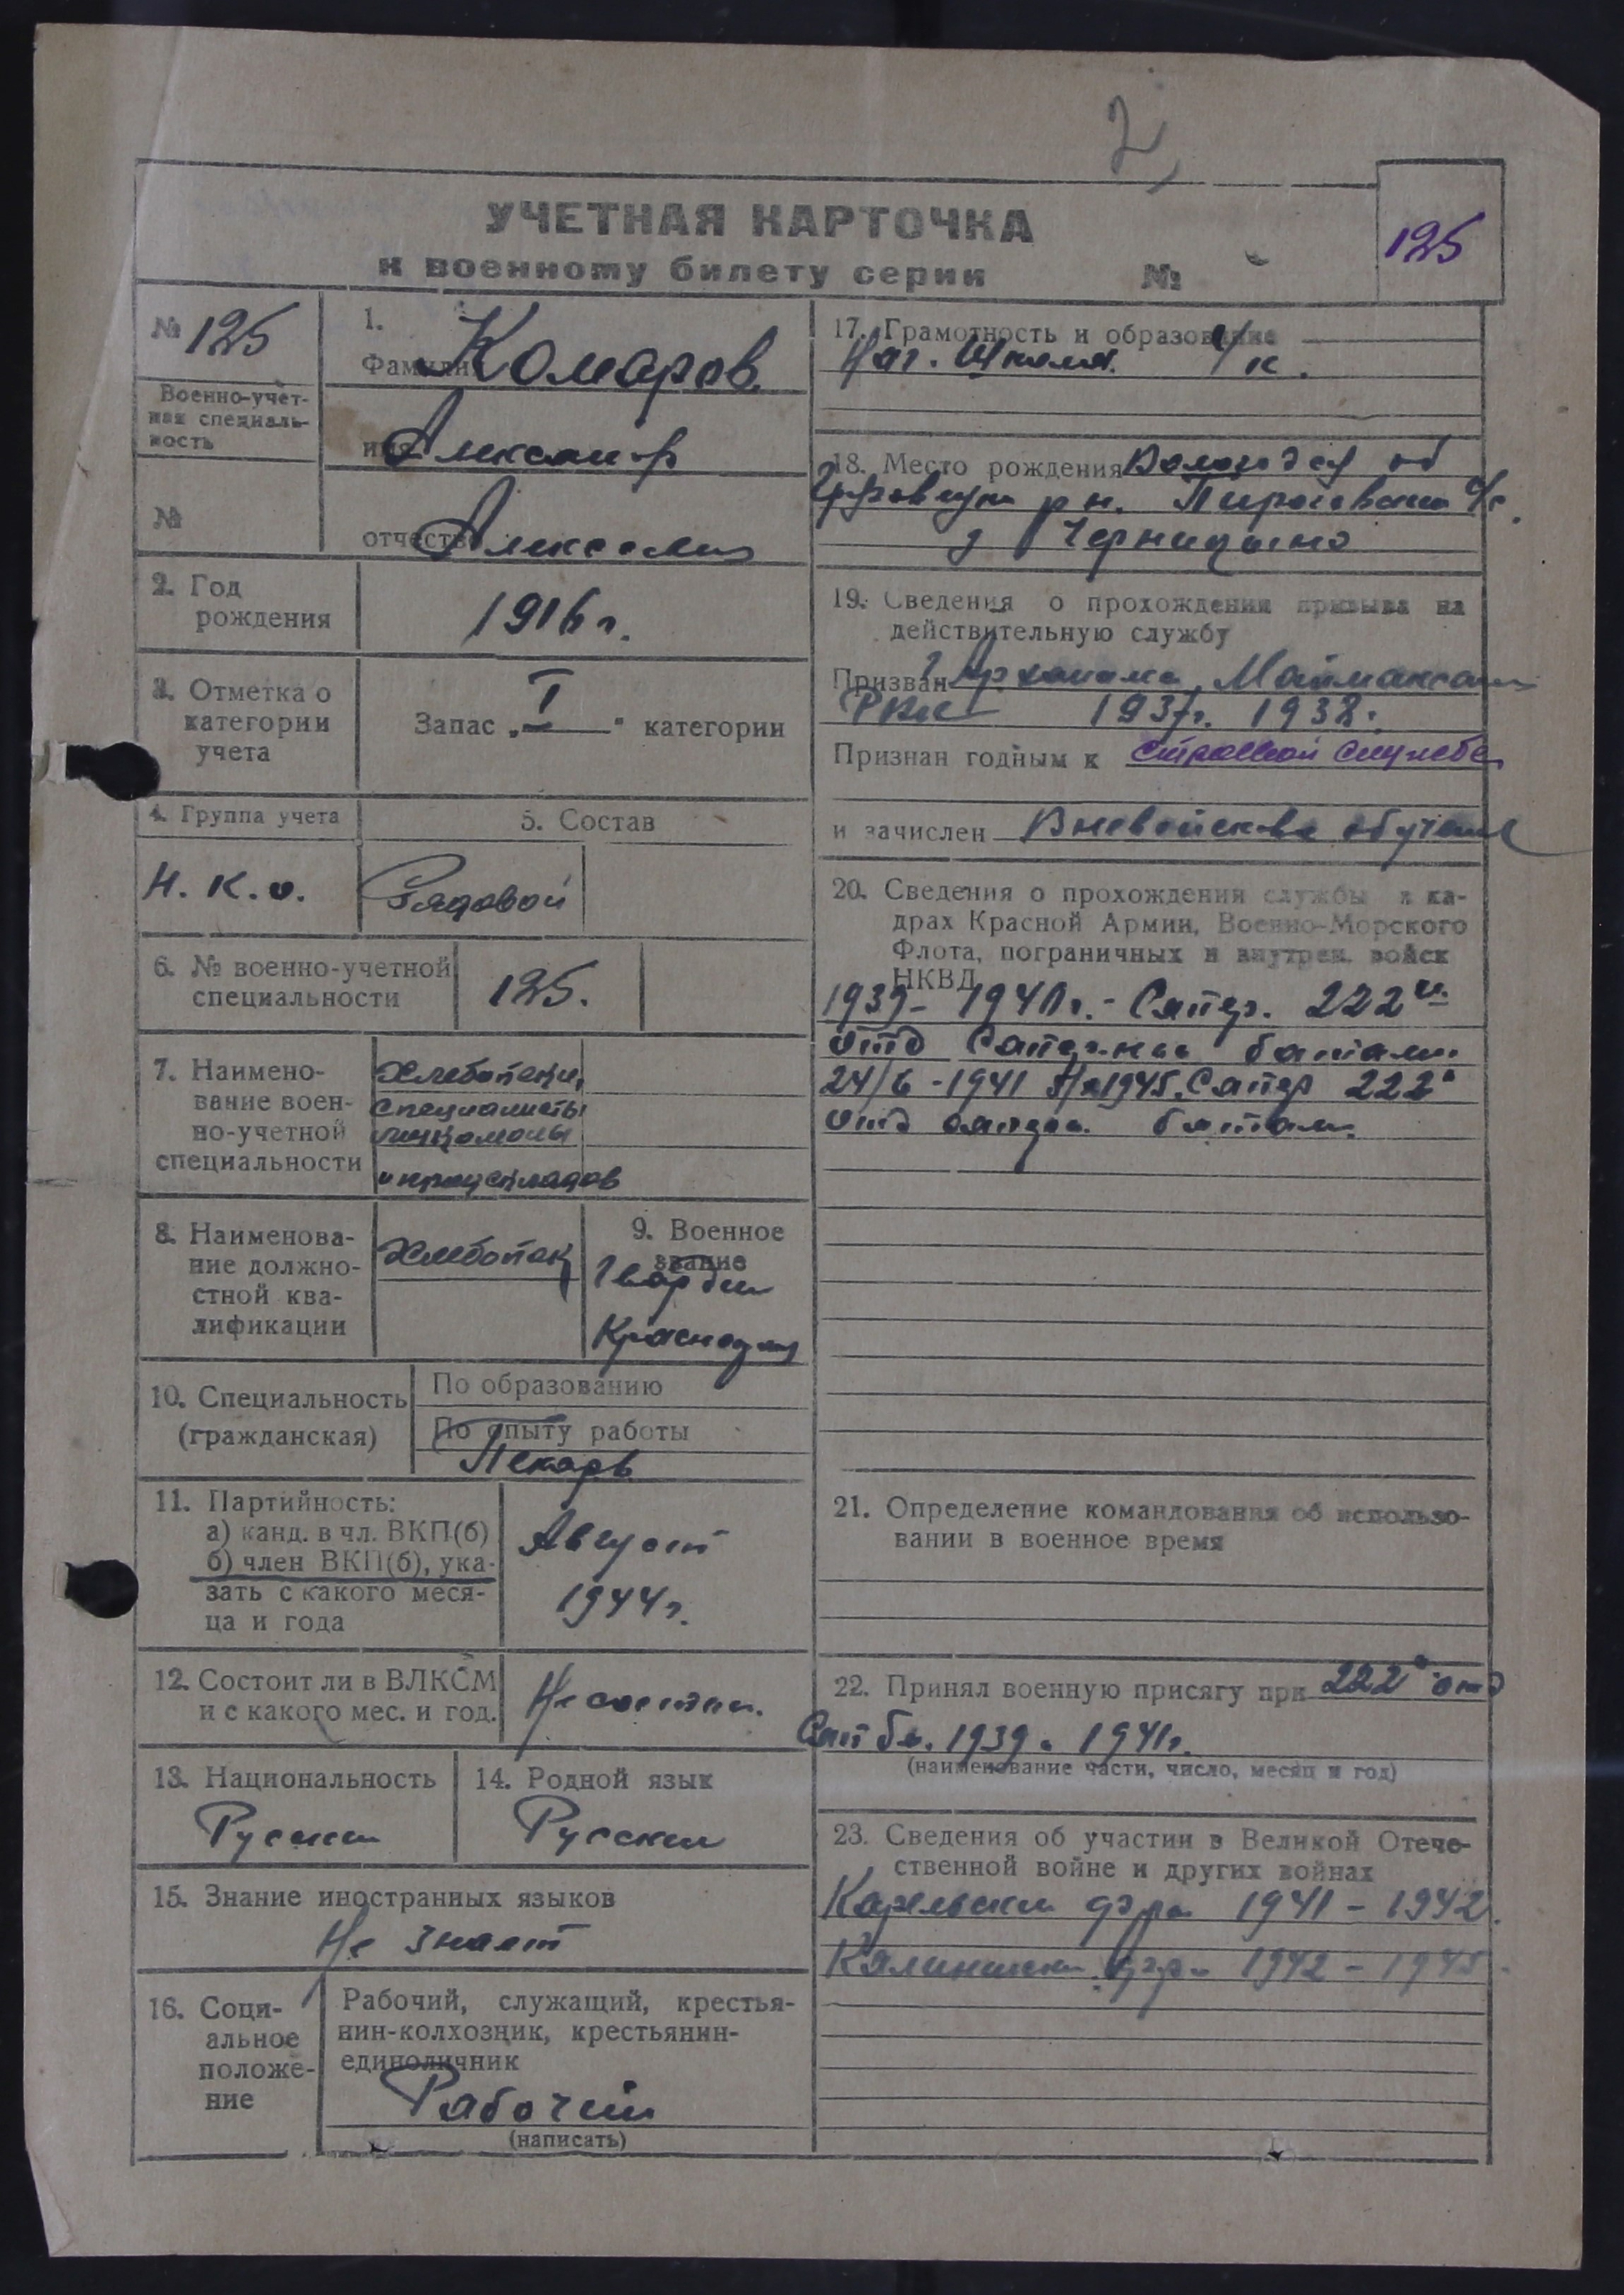 2
УЧЕТНАЯ КАРТОЧКА
к военному билету серии №
125
№ 125
Военно-учет-
ная специаль-
ность
№
1.
Фамилия Комаров
имя Александр
отчество Алексеевич
2. Год
рождения
1916 г.
3. Отметка о
категории
учета
Запас „I“ категории
4. Группа учета
Н. К. О.
5. Состав
Рядовой
6. № военно-учетной
специальности
125.
7. Наимено-
вание воен-
но-учетной
специальности
Хлебопеки,
специалисты
и продскладов
8. Наименова-
ние должно-
стной ква-
лификации
Хлебопек
9. Военное
звание
Гвардии
Красноарм
10. Специальность
(гражданская)
По образованию
По опыту работы
Пекарь
11. Партийность:
а) канд. в чл. ВКП(б)
б) член ВКП(б), ука-
зать с какого меся-
ца и года
Август
1944 г.
12. Состоит ли в ВЛКСМ
и с какого мес. и год.
Не состоит.
13. Национальность
Русский
14. Родной язык
Русский
15. Знание иностранных языков
Не знает
16. Соци-
альное
положе-
ние
Рабочий, служащий, крестья-
нин-колхозник, крестьянин-
единоличник
Рабочий
(написать)
17. Грамотность и образование
Нач. Школа. 4 к.
18. Место рождения Вологодск об
р н. с/с
д
19. Сведения о прохождении призыва на
действительную службу
Призван Маймаксан
РВК 1937 г. 1938.
Признан годным к строевой службе
и зачислен Вневойсков обучен
20. Сведения о прохождении службы в ка-
драх Красной Армии, Военно-Морского
Флота, пограничных и внутрен. войск
НКВД
1939 - 1940 г. - Сапер. 222
отд Саперный батальон
24/6 - 1941 1945. Сапер 222
отд сапер. батал.
21. Определение командования об использо-
вании в военное время
22. Принял военную присягу при 222 отд
Сап бн. 1939. 1941 г.
(наименование части, число, месяц и год)
23. Сведения об участии в Великой Отече-
ственной войне и других войнах
Карельский фрон 1941 - 1942.
Калинински фрон 1942 - 1945.